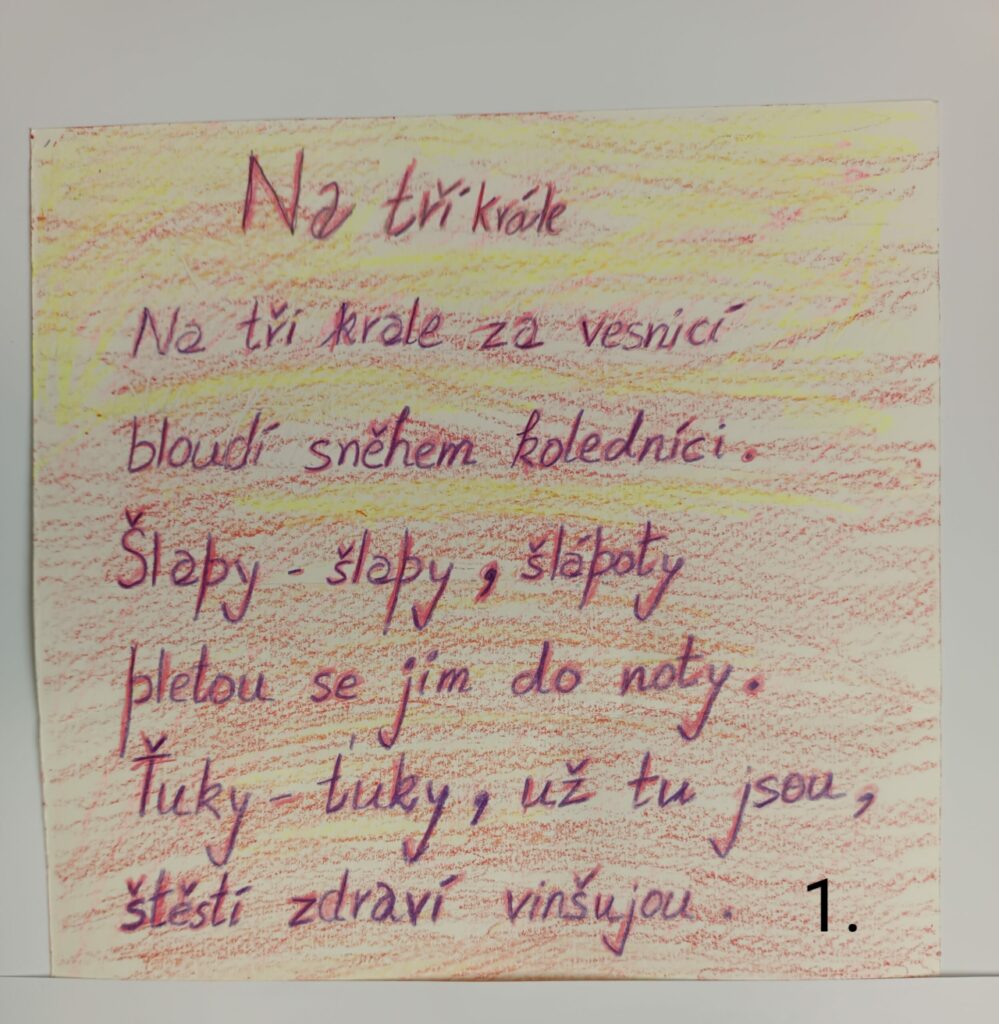 Na tří krále
Na tři krale za vesnicí
bloudí sněhem koledníci.
Šlapy - šlapy, šlápoty
pletou se jim do noty.
Ťuky - ťuky, už tu jsou,
štěstí zdraví vinšujou.
1.